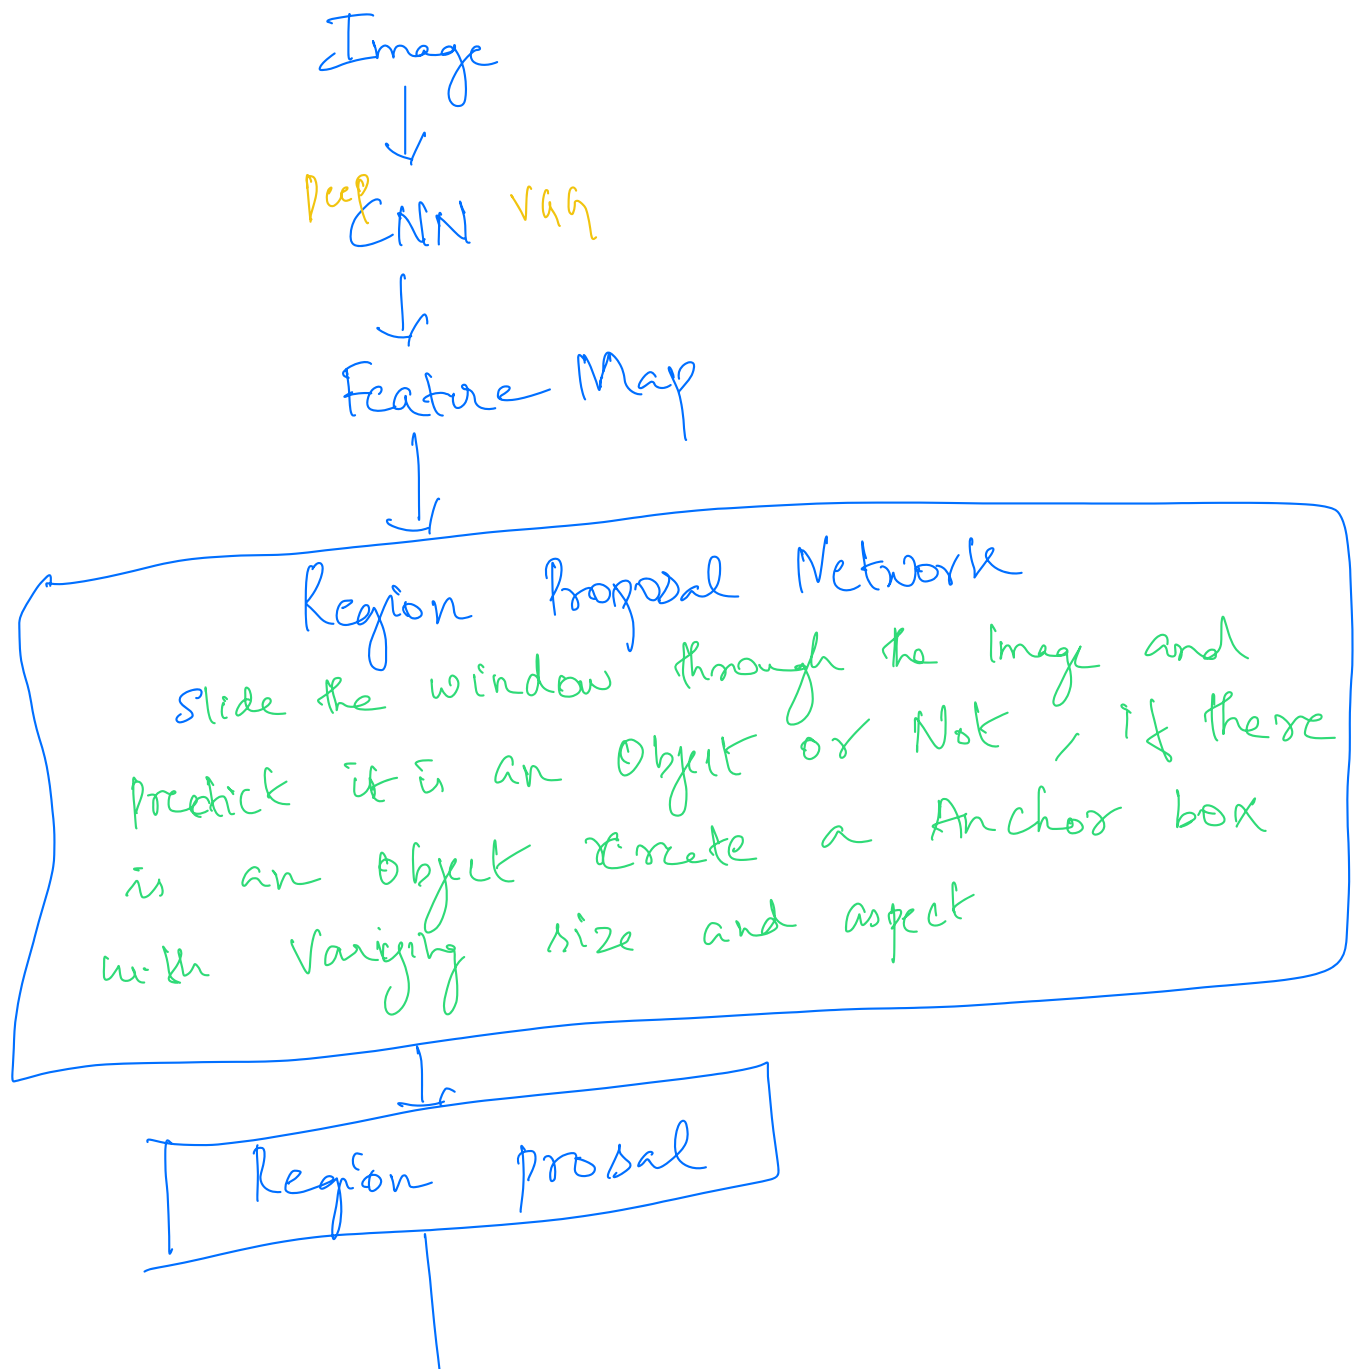 Image
Deep CNN VGG
Feature Map
Region Proposal Network
Slide the window through the Image and
Predict it is an Object or Not, if there
is an Object create a Anchor box
with Varying size and aspect
Region prosal